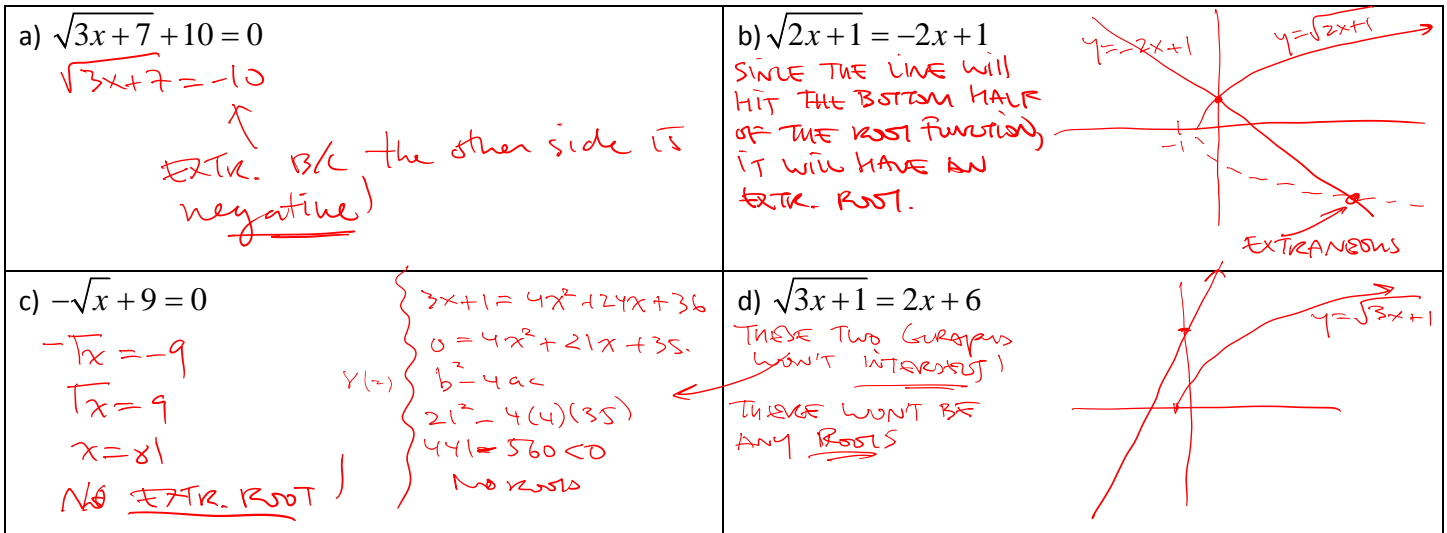 a) √3x+7 +10 = 0
√3x+7 = -10
EXTR. B/C the other side is
negative!
b) √2x+1 = −2x+1
SINCE THE LINE WILL
HIT THE BOTTOM HALF
OF THE ROOT FUNCTION,
IT WILL HAVE AN
EXTR. ROOT.
y=-2x+1
y=√2x+1
-1
EXTRANEOUS
c) −√x + 9 = 0
-√x = -9
√x = 9
x = 81
NO EXTR. ROOT!
3x+1 = 4x²+24x+36
0 = 4x²+21x+35.
b²-4ac
21²-4(4)(35)
441-560<0
No roots
d) √3x+1 = 2x+6
THESE TWO GRAPHS
WON'T INTERSECT!
THERE WON'T BE
ANY ROOTS
y=√3x+1